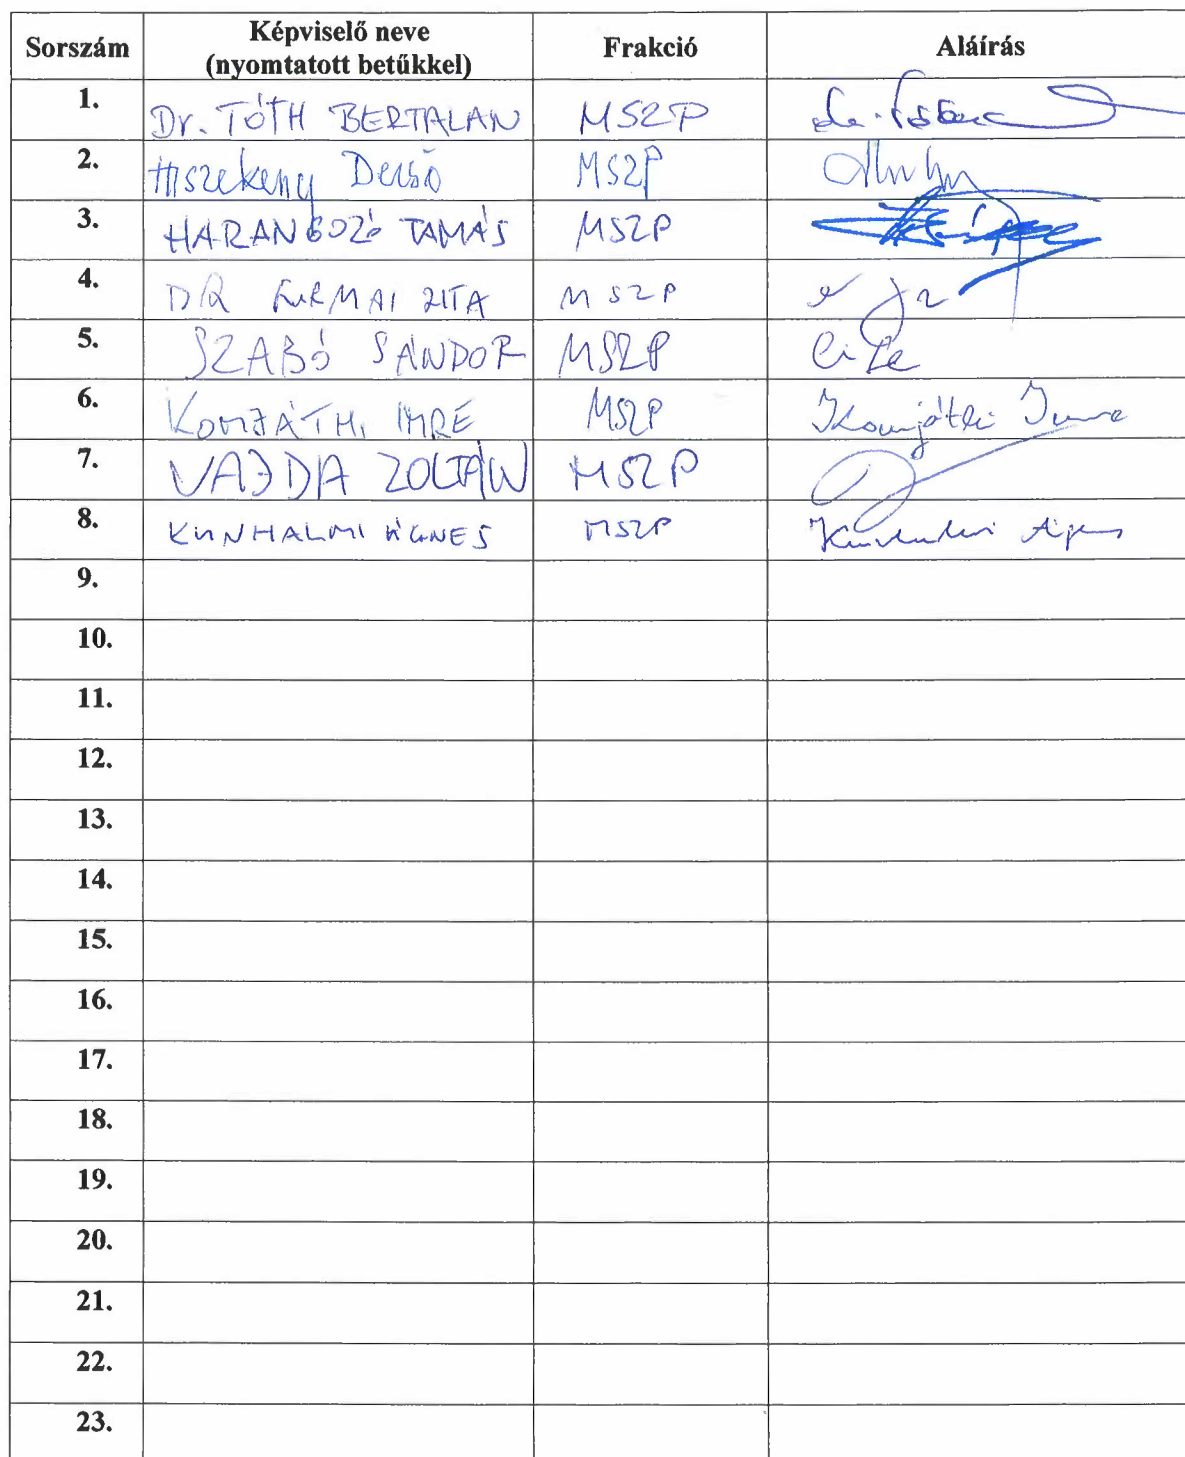 Sorszám Képviselő neve (nyomtatott betűkkel) Frakció Aláírás
1. Dr. TÓTH BERTALAN MSZP
2. Hiszékeny Dezső MSZP
3. HARANGOZÓ TAMÁS MSZP
4. DR KORMAI ZITA MSZP
5. SZABÓ SÁNDOR MSZP
6. KOMJÁTHI IMRE MSZP Komjáthi Imre
7. VAJDA ZOLTÁN MSZP
8. KUNHALMI ÁGNES MSZP Kunhalmi Ágnes
9.
10.
11.
12.
13.
14.
15.
16.
17.
18.
19.
20.
21.
22.
23.